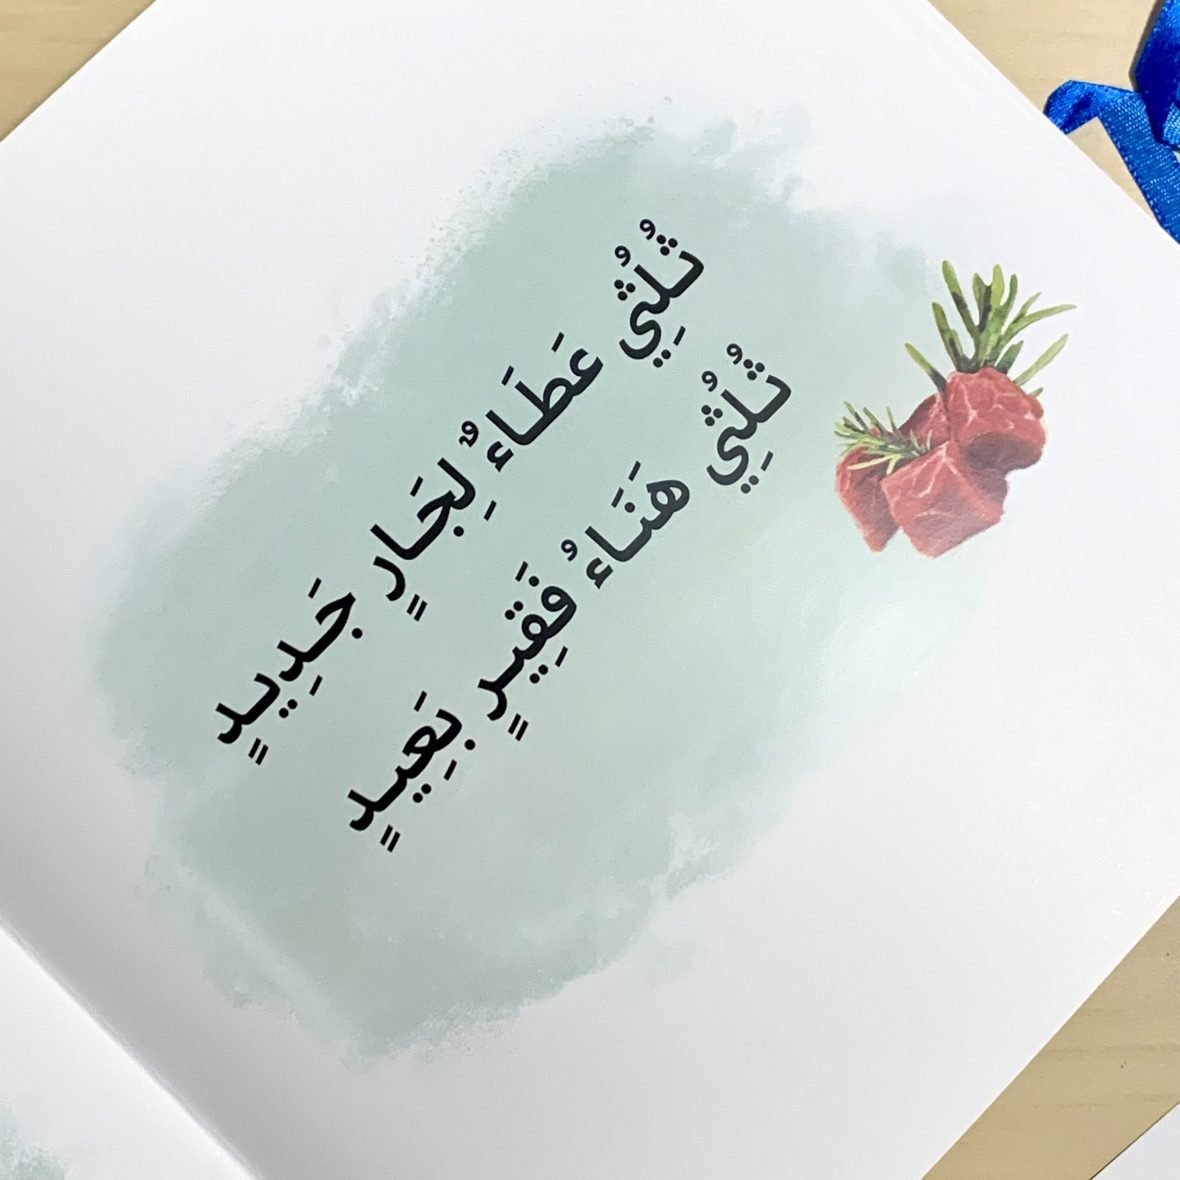 ثُلُثِي عَطَاءٌ لِجَارٍ جَدِيدٍ
ثُلُثِي هَنَاءُ فَقِيرٍ بَعِيدٍ